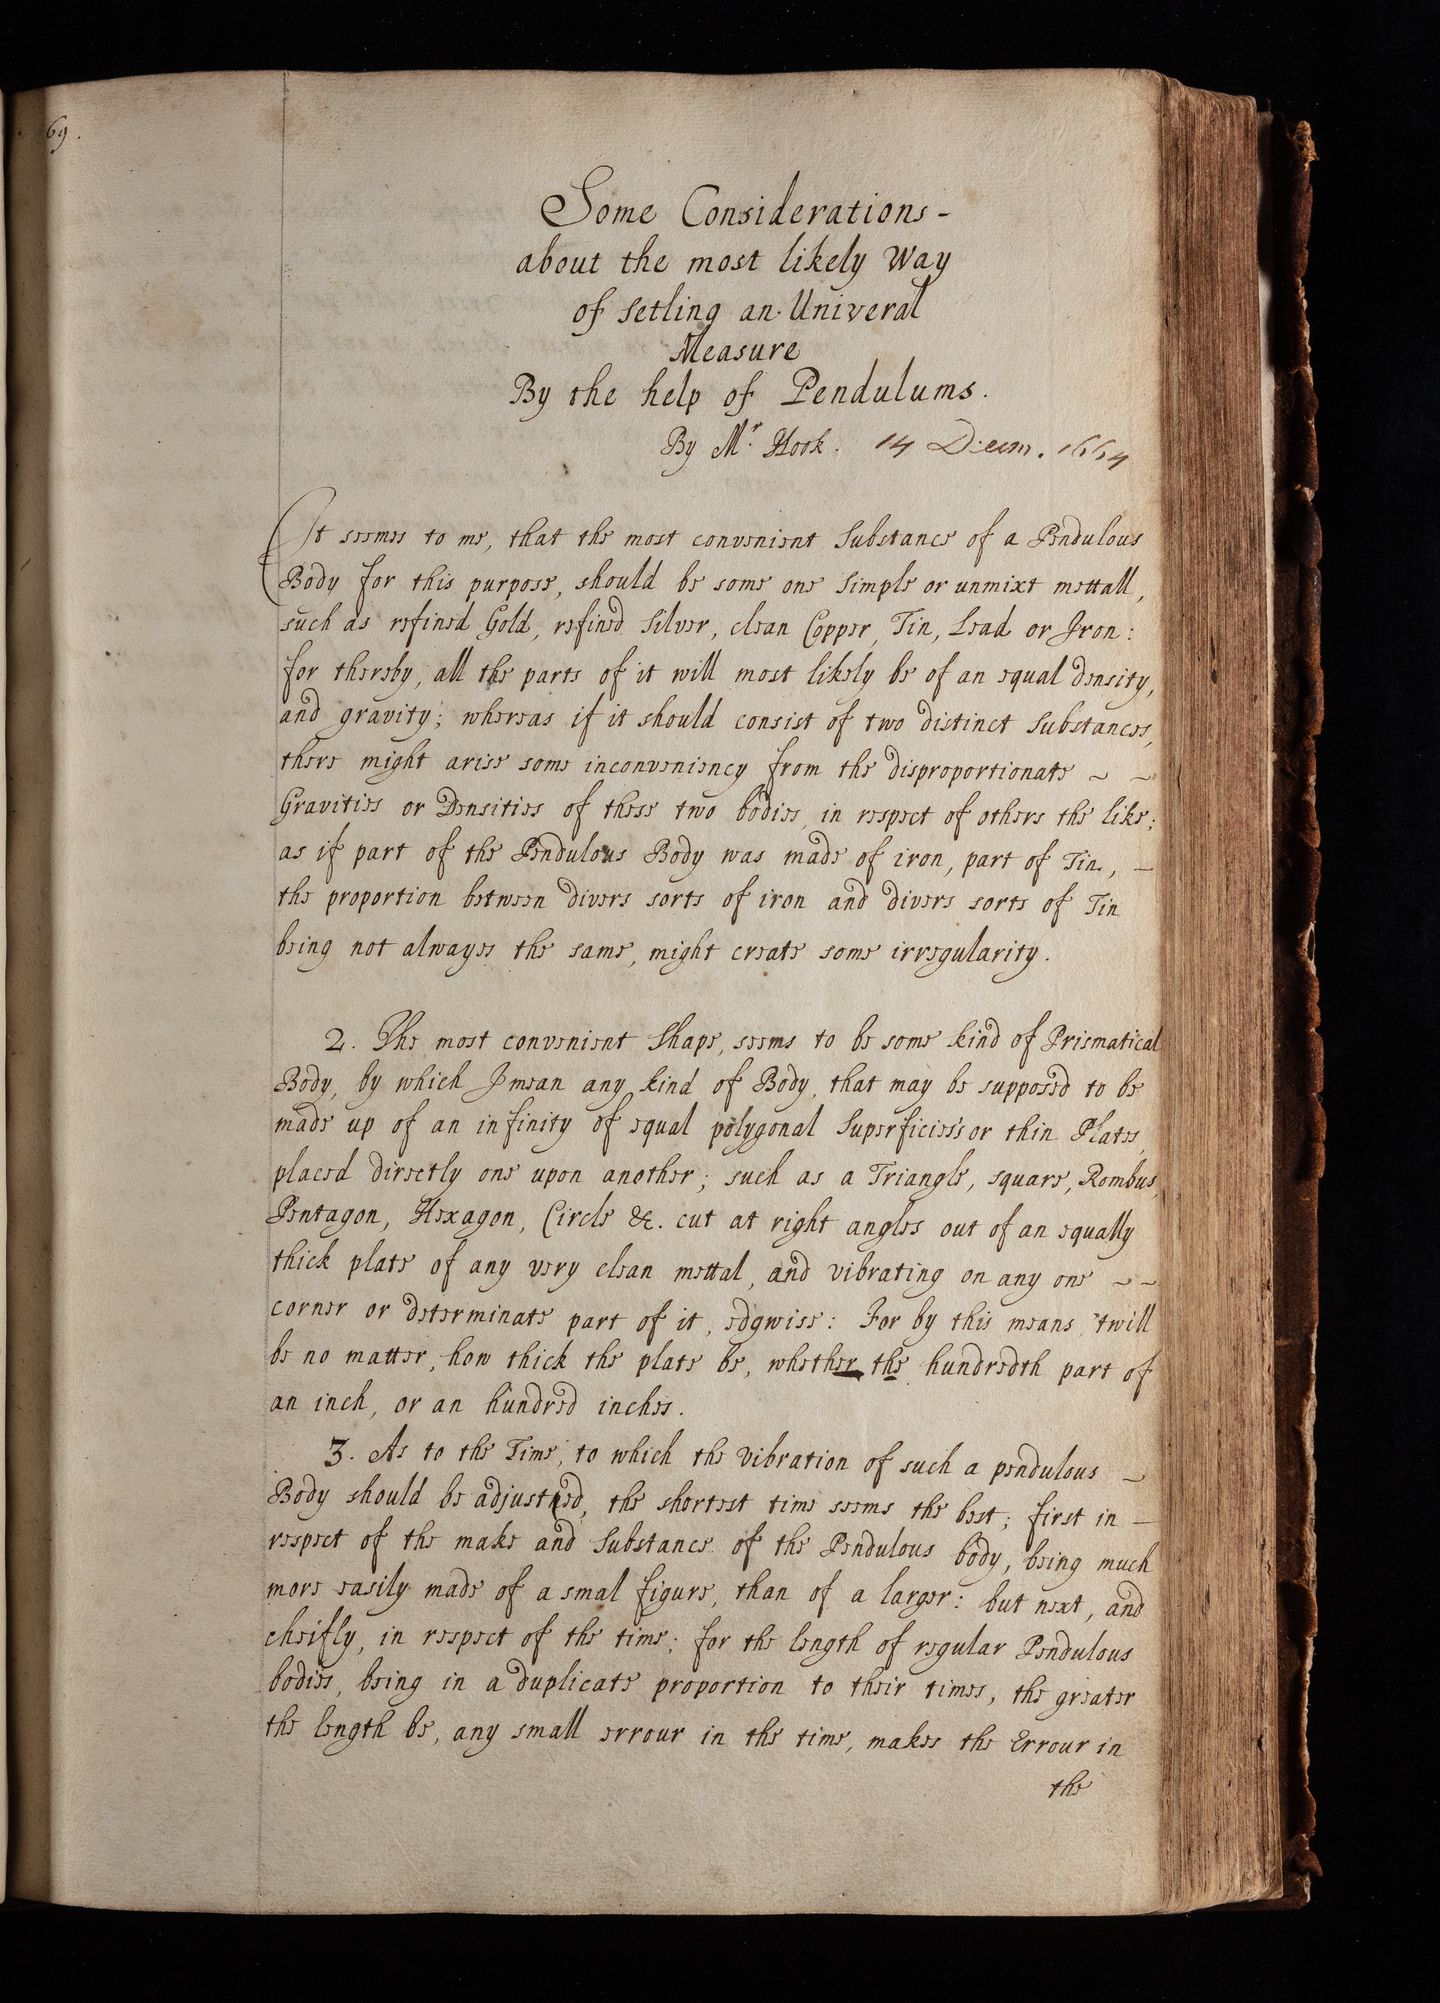 69.
Some Considerations -
about the most likely Way
of Setling an Univeral
Measure
By the help of Pendulums.
By Mr. Hook. 14 Decem. 1664
It seemes to me, that the most convenient Substance of a Pendulous
Body for this purpose, should be some one Simple or unmixt mettall,
such as refined Gold, refined Silver, clean Copper, Tin, Lead or Iron:
for thereby, all the parts of it will most likely be of an equal density,
and gravity; whereas if it should consist of two distinct Substances,
there might arise some inconveniency from the disproportionate ~ ~
Gravities or Densities of these two bodies, in respect of others the like;
as if part of the Pendulous Body was made of iron, part of Tin, -
the proportion between divers sorts of iron and divers sorts of Tin
being not alwayes the same, might create some irregularity.
2. The most convenient Shape, seems to be some kind of Prismatical
Body, by which I mean any kind of Body, that may be supposed to be
made up of an infinity of equal polygonal Superficies's or thin Plates,
placed directly one upon another; such as a Triangle, square, Rombus,
Pentagon, Hexagon, Circle &c. cut at right angles out of an equally
thick plate of any very clean mettal, and vibrating on any one ~ ~
corner or determinate part of it, edgwise: For by this means, 'twill
be no matter, how thick the plate be, whether the hundredth part of
an inch, or an hundred inches.
3. As to the Time, to which the Vibration of such a pendulous ~
Body should be adjusted, the shortest time seems the best; first in -
respect of the make and Substance of the Pendulous body, being much
more easily made of a smal figure, than of a larger: but next, and
cheifly, in respect of the time; for the length of regular Pendulous
bodies, being in a duplicate proportion to their times, the greater
the length be, any small errour in the time, makes the Errour in
the